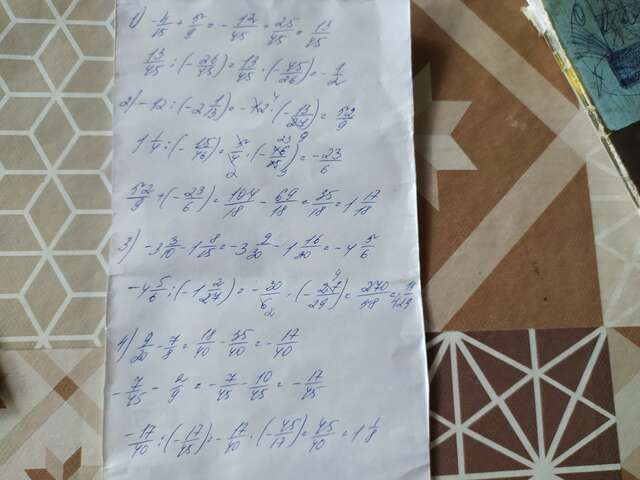 1) -4/15 + 5/9 = -12/45 + 25/45 = 13/45
13/45 : (-26/45) = 13/45 · (-45/26) = -1/2
2) -12 : (-2 1/13) = -12 · (-13/27) = 52/9
1 1/4 : (-15/46) = 5/4 · (-46/15) = -23/6
52/9 + (-23/6) = 104/18 - 69/18 = 35/18 = 1 17/18
3) -3 3/10 - 1 8/15 = -3 9/30 - 1 16/30 = -4 5/6
-4 5/6 : (-1 2/27) = -30/6 · (-27/29) = 270/58
4) 9/20 - 7/8 = 18/40 - 35/40 = -17/40
-7/45 - 2/9 = -7/45 - 10/45 = -17/45
-17/40 : (-17/45) = -17/40 · (-45/17) = 45/40 = 1 1/8